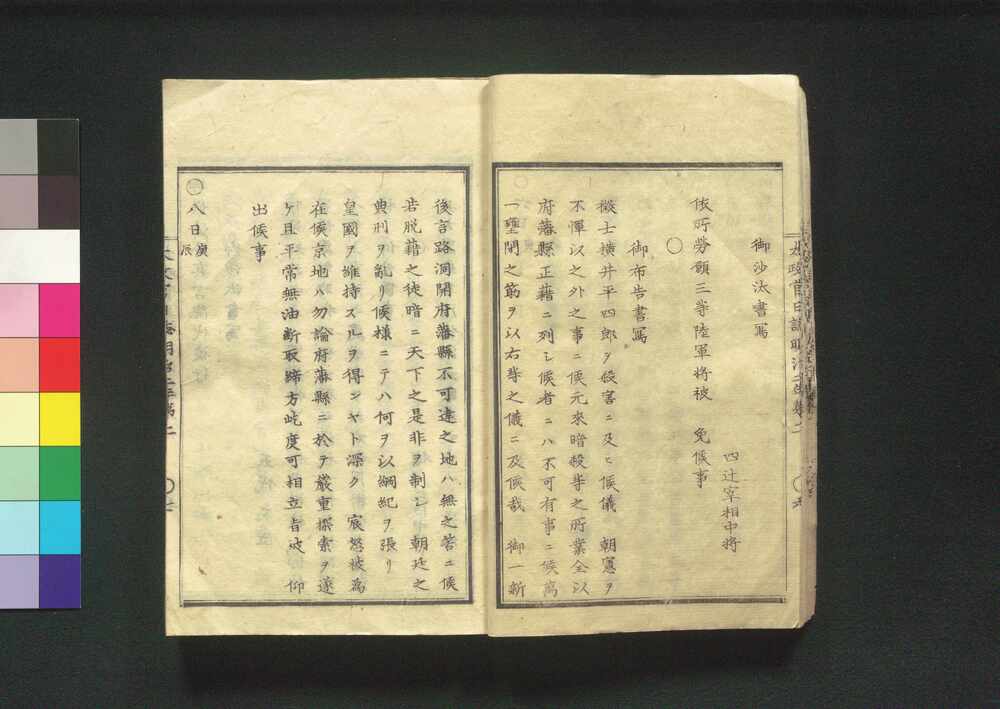 御沙汰書寫
四辻宰相中將
依所勞願三等陸軍將被　免候事
〇
御布告書寫
徴士横井平四郎ヲ殺害ニ及ヒ候儀　朝憲ヲ
不憚以之外之事ニ候元來暗殺等之所業全以
府藩縣正藉ニ列シ候者ニハ不可有事ニ候萬
一壅閉之筋ヲ以右等之儀ニ及候哉　御一新
後言路洞開府藩縣不可達之地ハ無之筈ニ候
若脱藉之徒暗ニ天下之是非ヲ制シ　朝廷之
典刑ヲ亂リ候様ニテハ何ヲ以綱紀ヲ張リ
皇國ヲ維持スルヲ得ンヤト深ク　宸怒被為
在候京地ハ勿論府藩縣ニ於テ嚴重探索ヲ遂
ケ且平常無油断取締方屹度可相立旨被　仰
出候事
八日庚辰